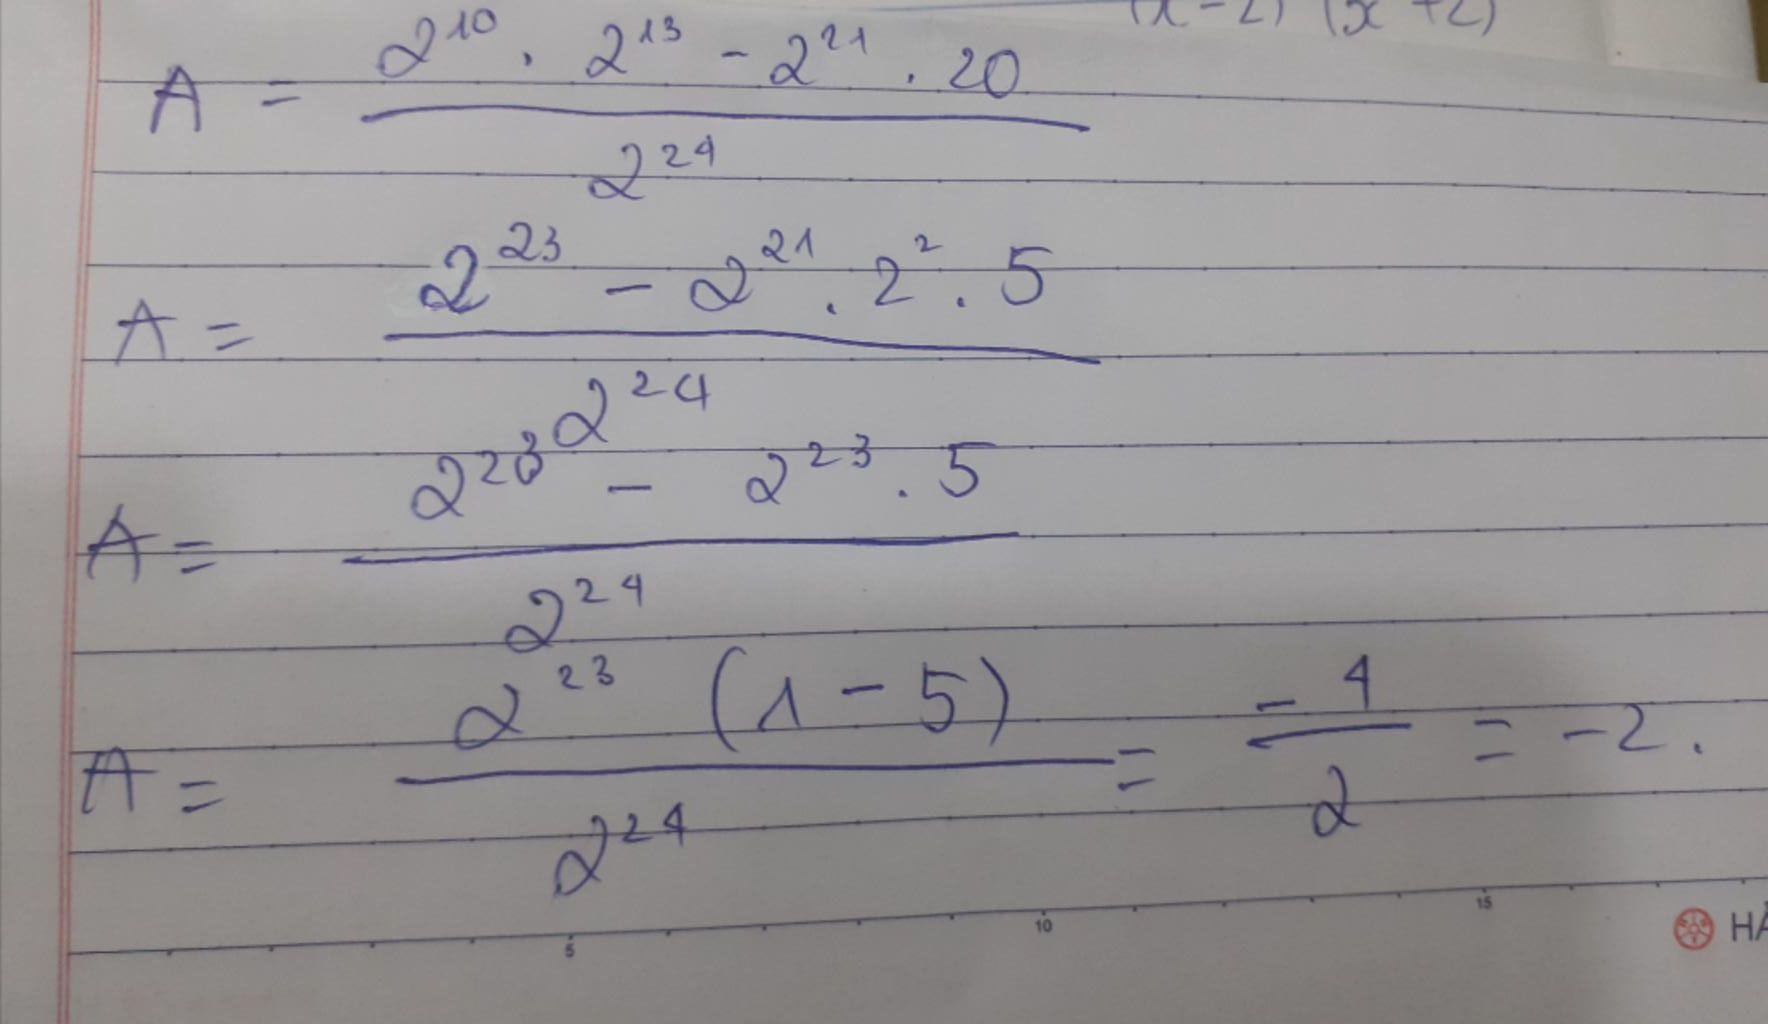 (x-2) (x+2)
A = \frac{2^{10} . 2^{13} - 2^{21} . 20}{2^{24}}
A = \frac{2^{23} - 2^{21} . 2^{2} . 5}{2^{24}}
A = \frac{2^{23} - 2^{23} . 5}{2^{24}}
A = \frac{2^{23} (1 - 5)}{2^{24}} = \frac{-4}{2} = -2.
5 10 15